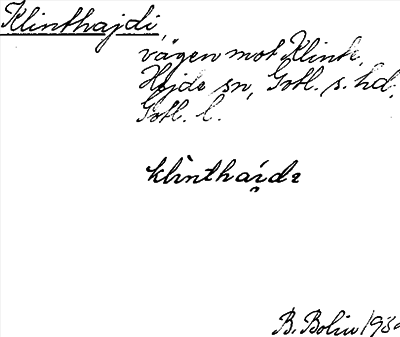 Klinthajdi,
vägen mot Klinte,
Hejde sn, Gotl. s. hd,
Gotl. l.
klìntháidɛ
B. Bolin